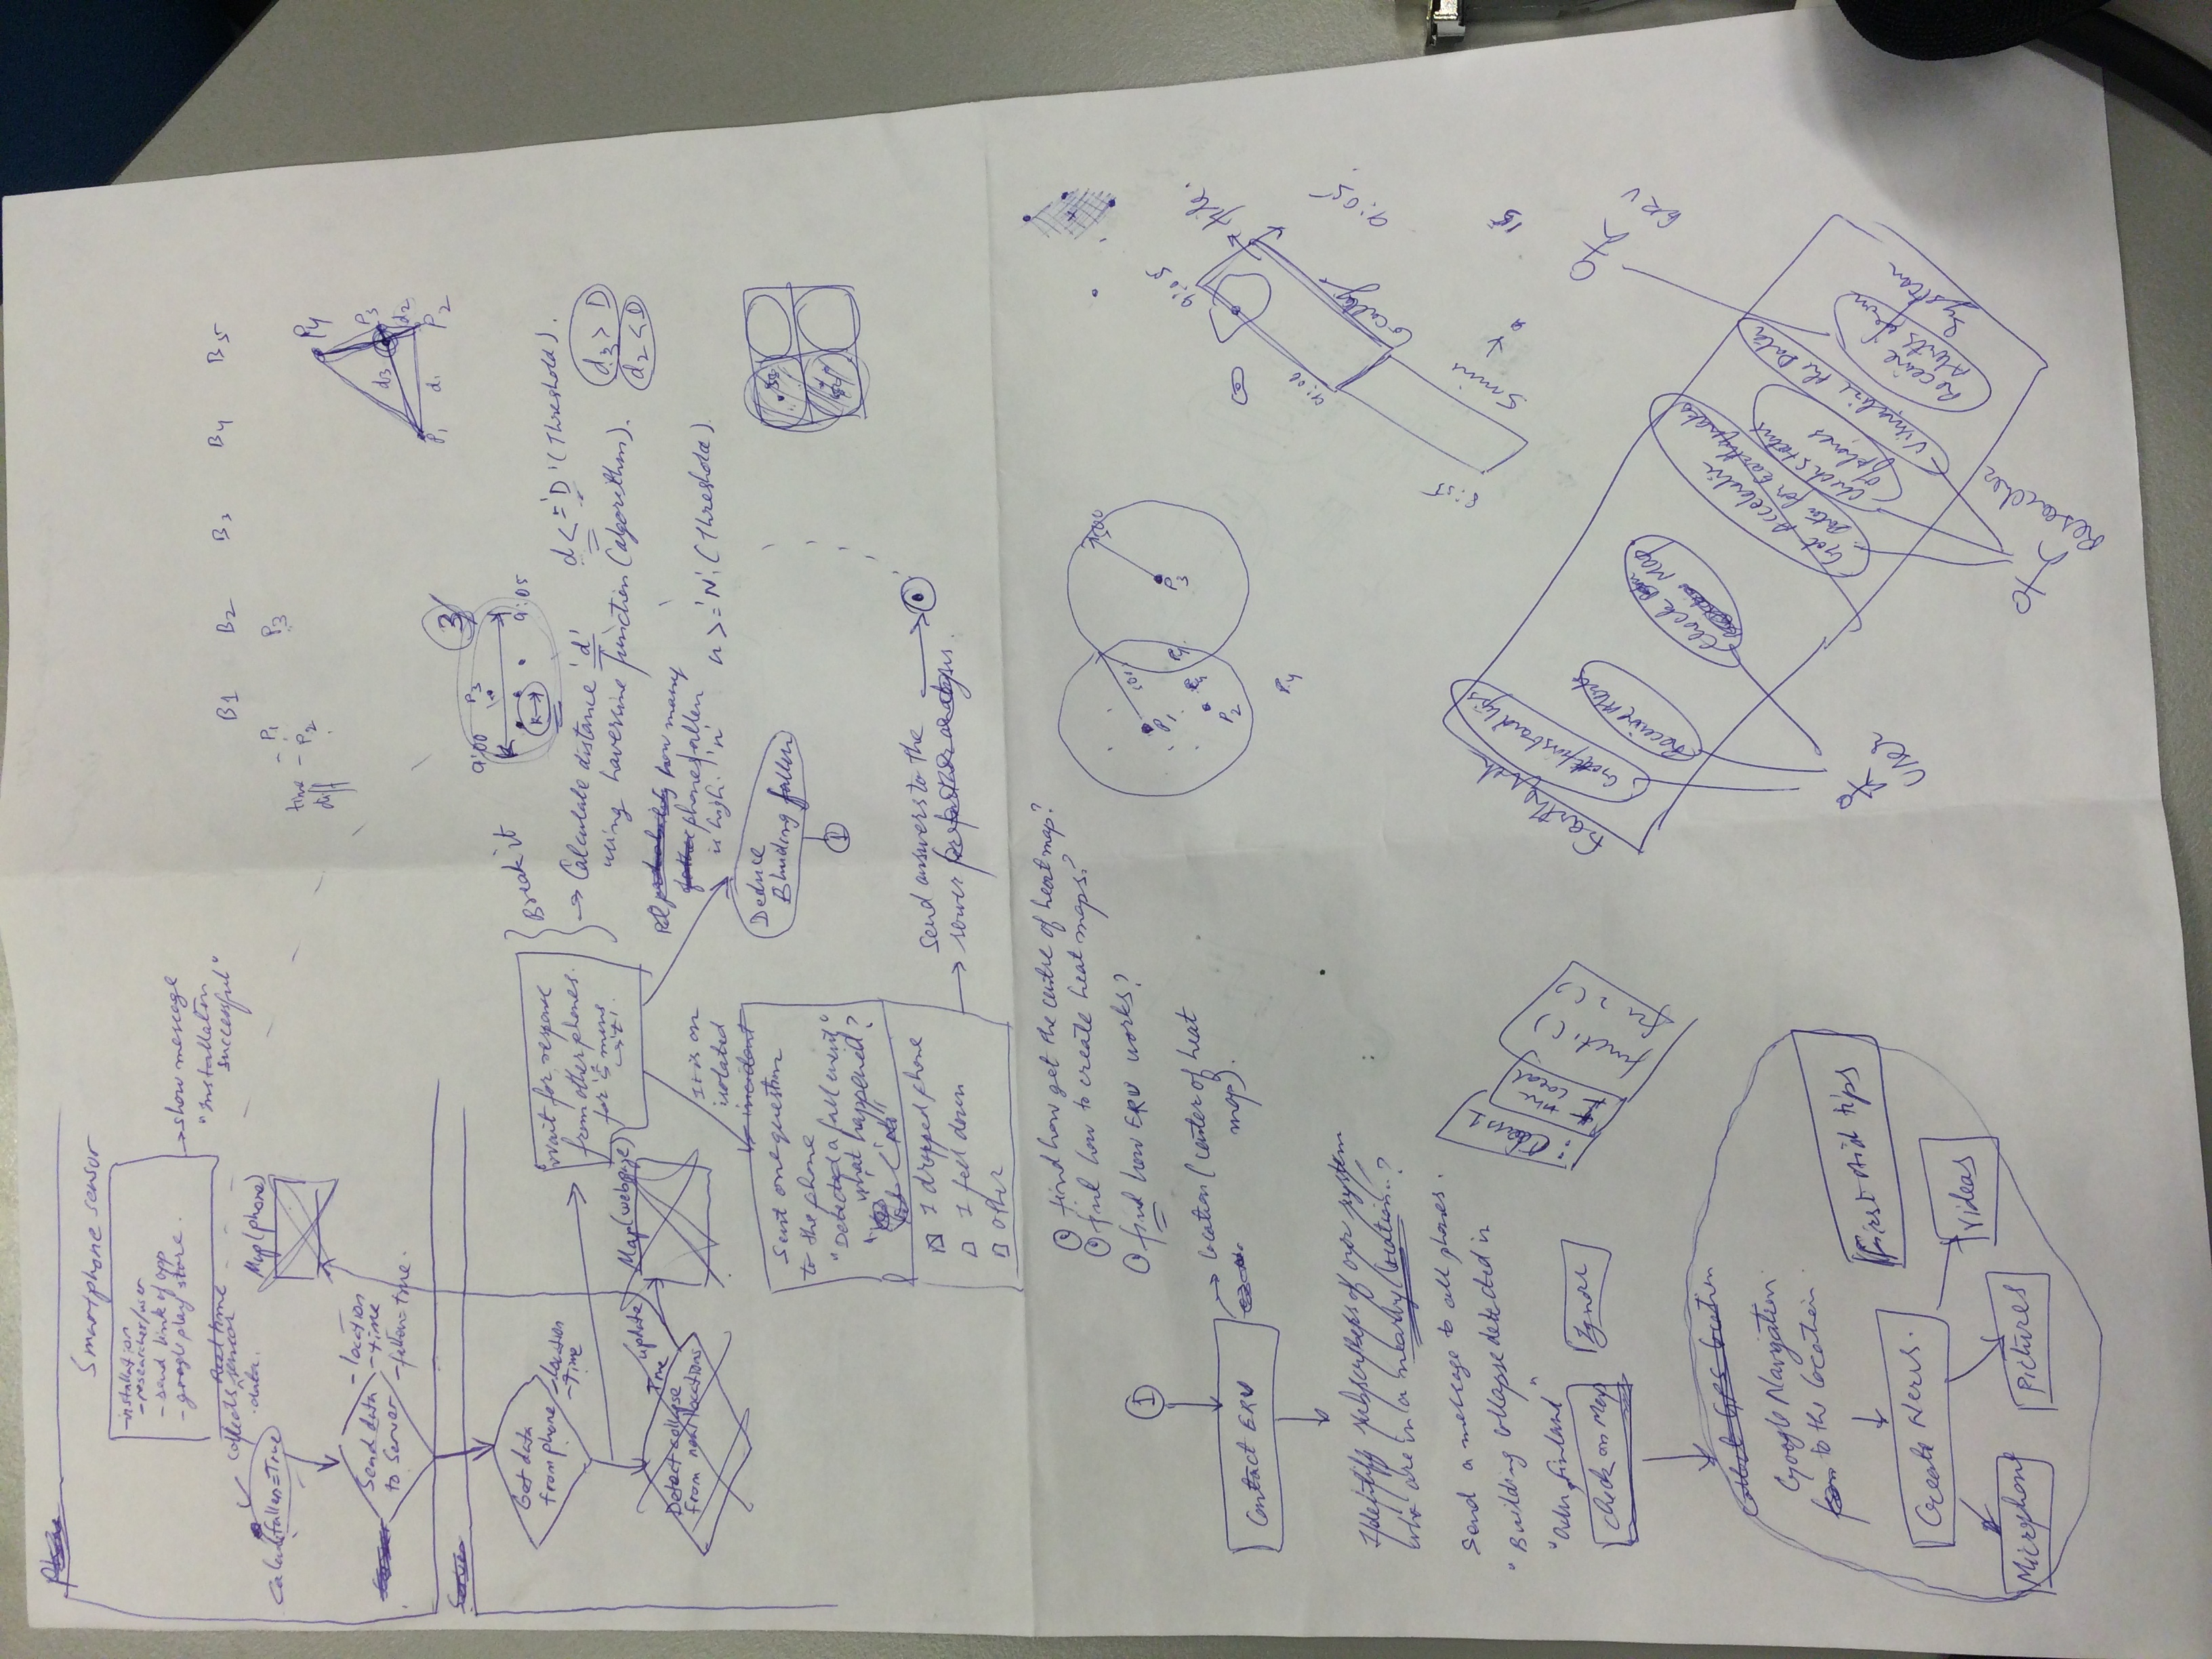 Phone
Smartphone sensor
-installation
- researcher/user
- send link of app
- google play store.
→ show message
"Installation
successful"
Real time
collects sensor
data.
fallen=True
Map(phone)
Send data
to Server
- location
- time
- fallen=true.
Server
Get data
from phone
- location
- Time
wait for response
from other phones.
for '5 mins
→'t'
Break it
→ Calculate distance 'd'
using haversine function (algorithm).
d <= 'D' (Threshold).
d3 > D
d2 < D
True
update
Map(webpage)
Detect collapse
from near locations
It is an
isolated
incident
probability how many
phones fallen
is high. 'n'
n >= 'N', (Threshold).
Deduce
Bluiding fallen
1
Sent one question
to the phone
"Detected a fall event"
what happened?
I dropped phone
I fell down
Other
→ Send answers to the
server for further analysis.
B1 B2 B3 B4 B5
time
diff
- P1
- P2
P3
P4
P3
d3
d2
P1 d1 P2
3
9:00 P3
9:05
find how get the centre of heat map?
find how to create heat maps?
find how ERV works?
1
Contact ERV
→ location (center of heat
map).
Identify subscribers of our system
who are in a nearby location..?
Send a message to all phones.
"Building collapse detected in
"Oulu, Finland"
Check on Map
Ignore
Collect GPS location
Google Navigation
to the location
First Aid tips
Create News.
Videos
Microphone
Pictures
: Class1
funct1()
fu 2()
P1
P2
P3
P4
500
9:05
file.
9:00
Locally
9:05
8:55
5 mins
15
Receive Alerts
Check
Map
Got Accelerative
data for Earthquake
Check status
of phones
Visualize the Data
Receive
Alerts from
System
User
Researcher
ERV